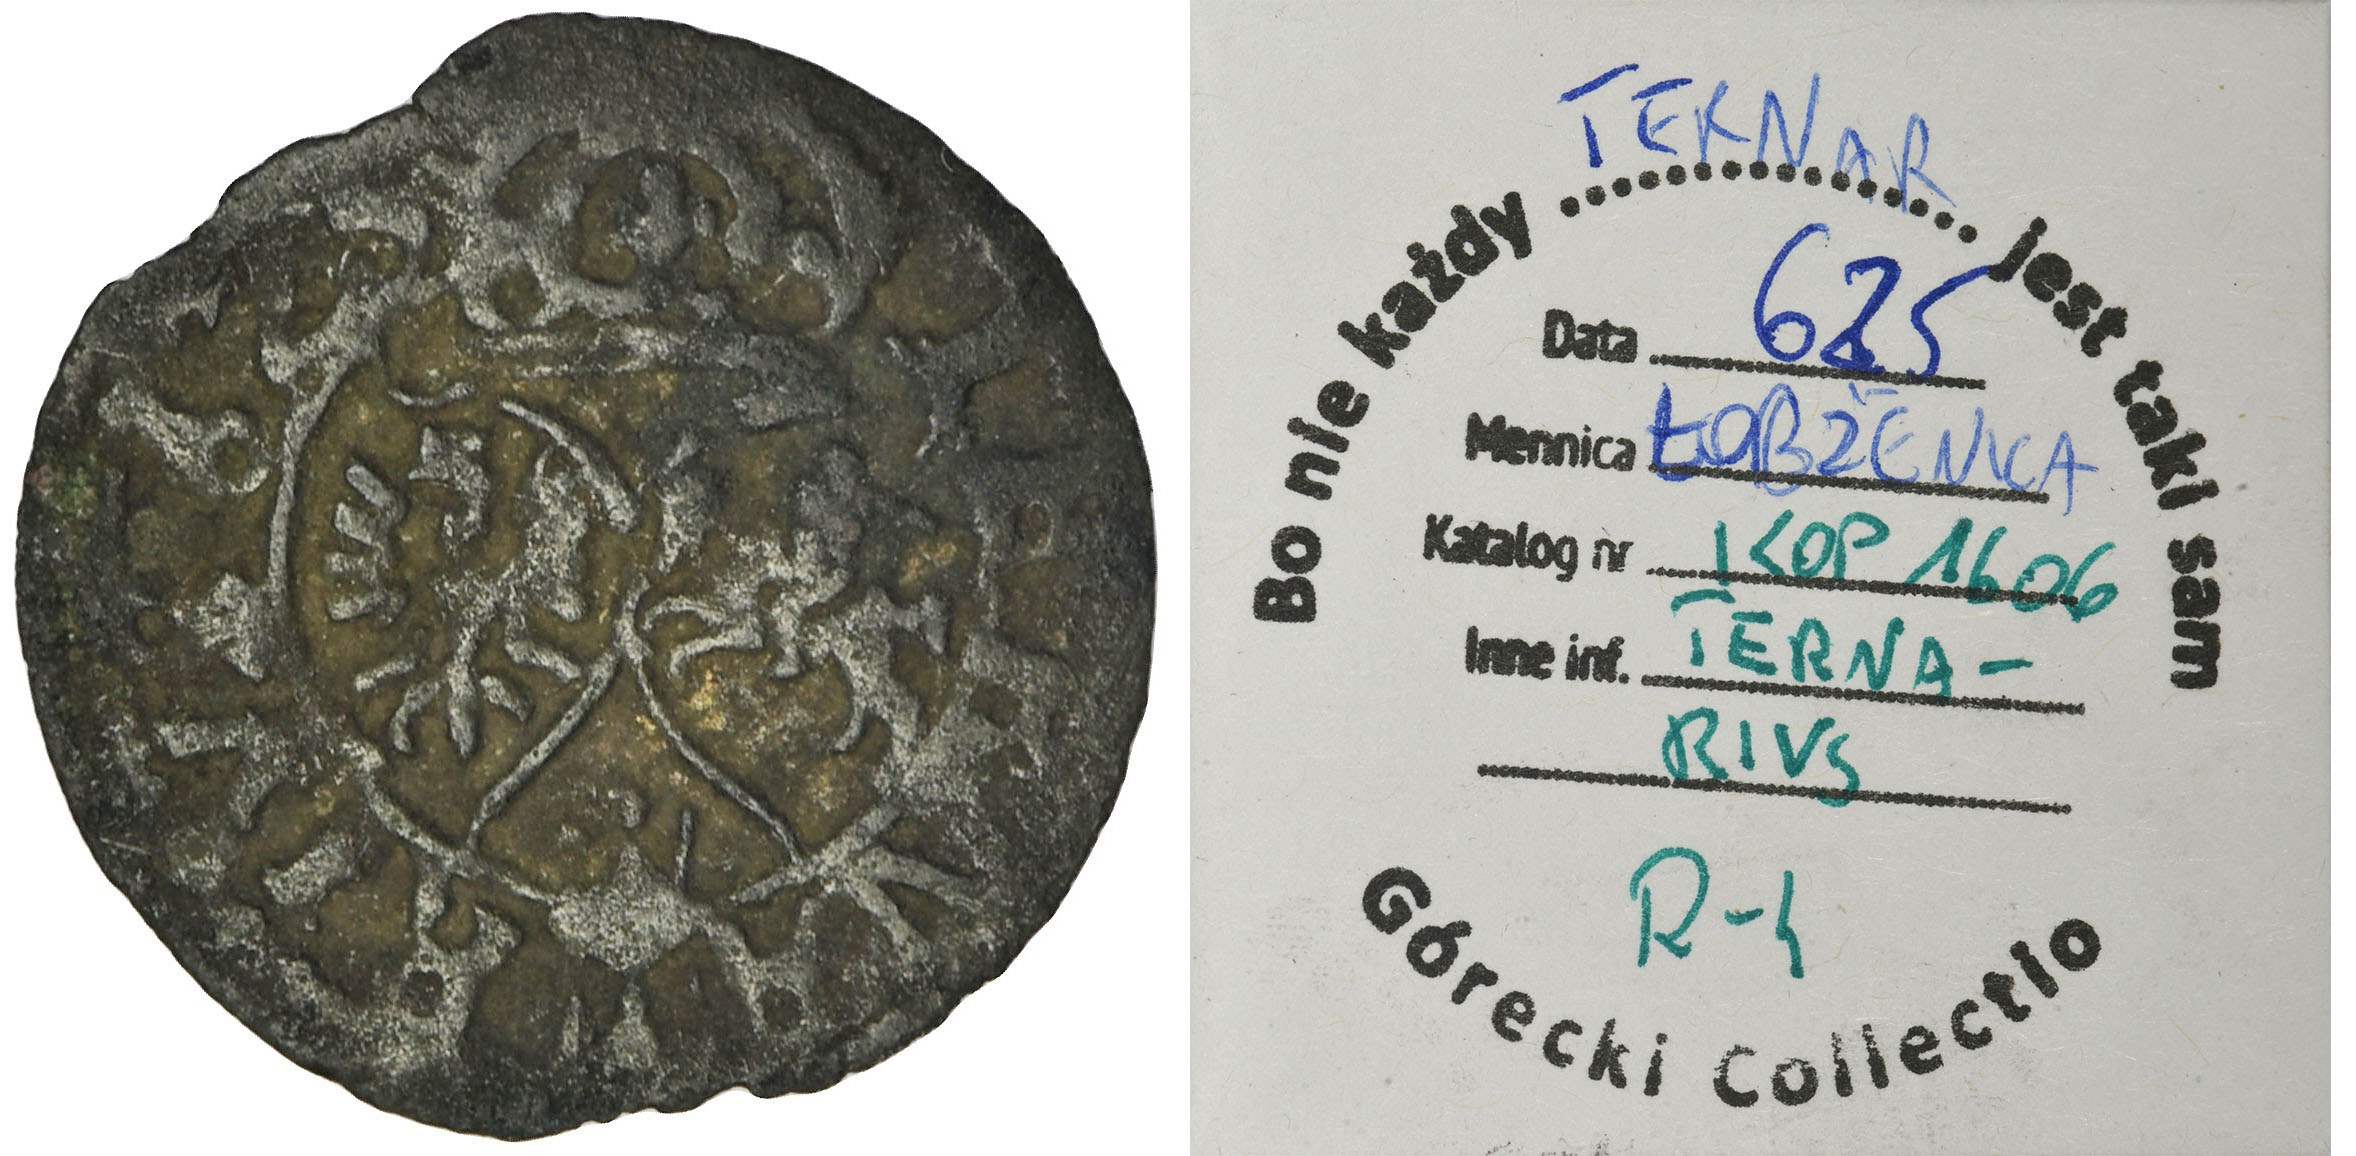 Bo nie każdy TERNAR jest taki sam
Data 625
Mennica ŁOBŻENICA
Katalog nr KOP 1606
Inne inf. TERNA-
RIVS
R-4
Górecki Collectio